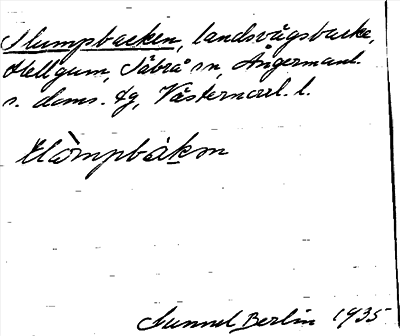 Slumpbacken, landsvägsbacke,
Hellgum, Säbrå sn, Ångermanl.
s. doms. tg, Västernorrl. l.
Slòmpbákεn
Gunnel Berlin 1935